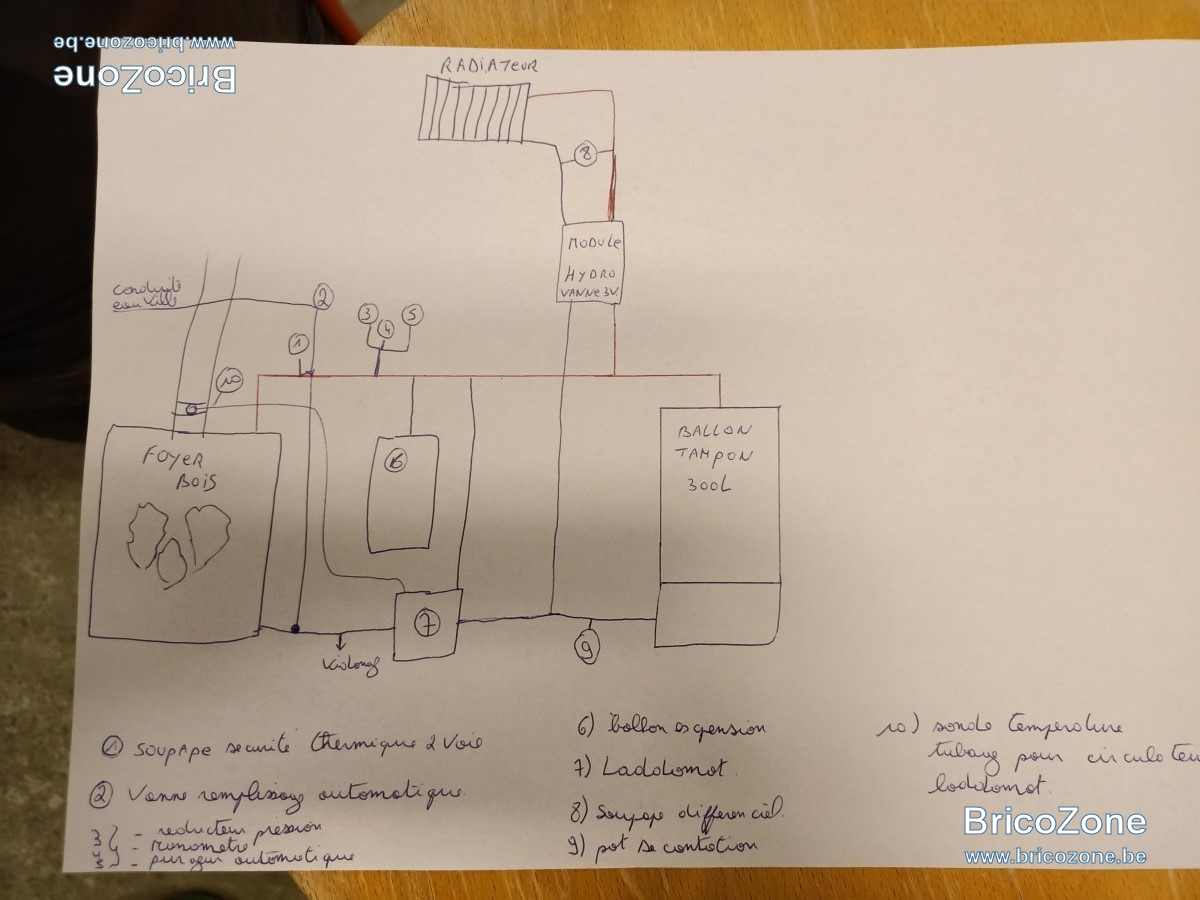 www.bricozone.be
BricoZone
RADIATEUR
8
MODULE
HYDRO
VANNE 3V.
conduite
eau Ville
2
3
4
5
1
10
FOYER
BOIS
6
BALLON
TAMPON
300L
7
9
Vidange
1 SOUPAPE securité thermique 2 Voie
2 Vanne remplissage automatique.
3 - reducteur pression
4 - manometre
5 - purgeur automatique
6) ballon expension
7) Ladolomot.
8) Soupape differenciel.
9) pot de
10) sonde temperature
tubage pour circulateur
ladolomot.
BricoZone
www.bricozone.be